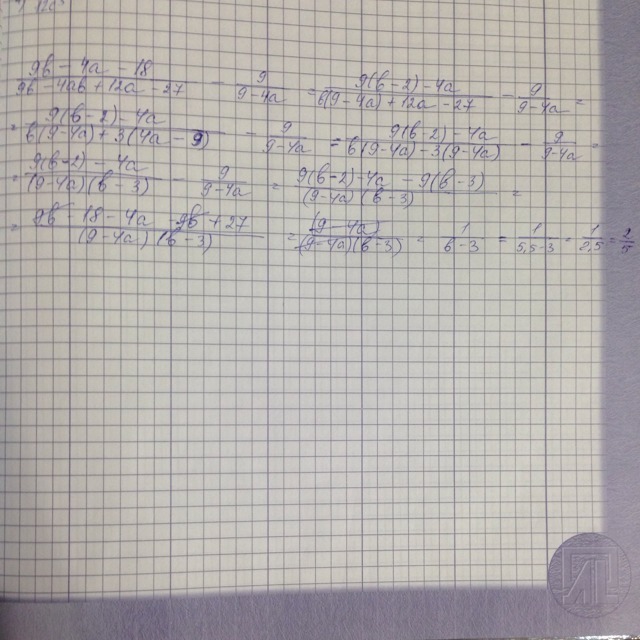 \frac{9b - 4a - 18}{9b - 4ab + 12a - 27} - \frac{9}{9-4a} = \frac{9(b-2) - 4a}{b(9-4a) + 12a - 27} - \frac{9}{9-4a} =
= \frac{9(b-2) - 4a}{b(9-4a) + 3(4a - 9)} - \frac{9}{9-4a} = \frac{9(b-2) - 4a}{b(9-4a) - 3(9-4a)} - \frac{9}{9-4a} =
= \frac{9(b-2) - 4a}{(9-4a)(b-3)} - \frac{9}{9-4a} = \frac{9(b-2) - 4a - 9(b-3)}{(9-4a)(b-3)} =
= \frac{9b - 18 - 4a - 9b + 27}{(9-4a)(b-3)} = \frac{(9-4a)}{(9-4a)(b-3)} = \frac{1}{b-3} = \frac{1}{5,5-3} = \frac{1}{2,5} = \frac{2}{5}